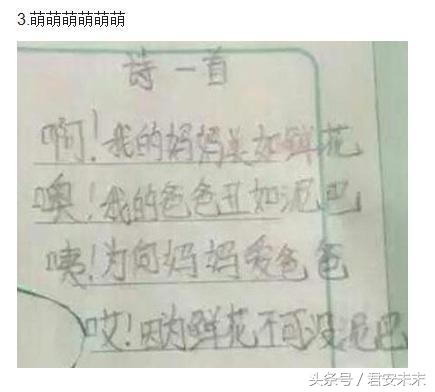 3.萌萌萌萌萌萌
诗一首
啊!我的妈妈美如鲜花
噢!我的爸爸丑如泥巴
咦!为何妈妈爱爸爸
哎!因为鲜花不可没泥巴
头条号/君安未末